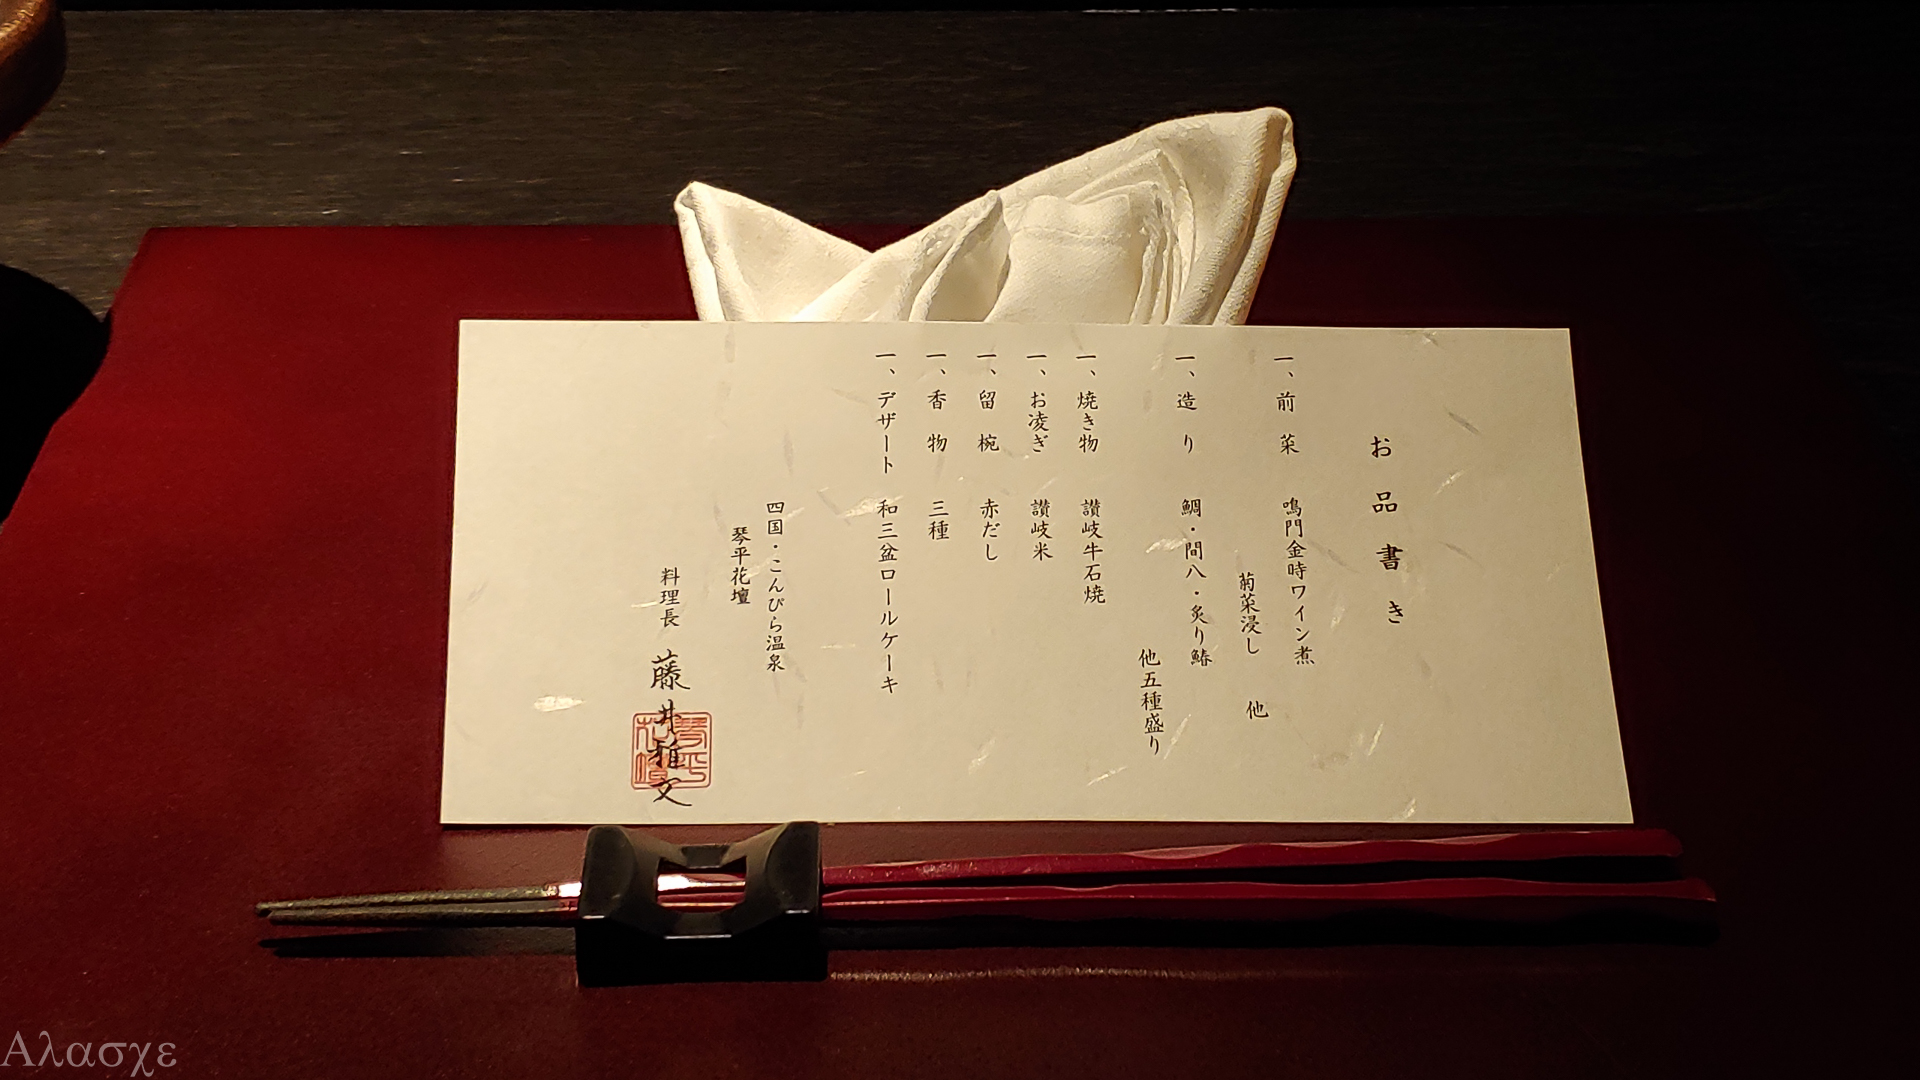 お品書き
一、前菜 鳴門金時ワイン煮
菊菜浸し 他
一、造り 鯛・間八・炙り鰆
他五種盛り
一、焼き物 讃岐牛石焼
一、お凌ぎ 讃岐米
一、留椀 赤だし
一、香物 三種
一、デザート 和三盆ロールケーキ
四国・こんぴら温泉
琴平花壇
料理長 藤井雅文
琴平花壇
Αλασχε